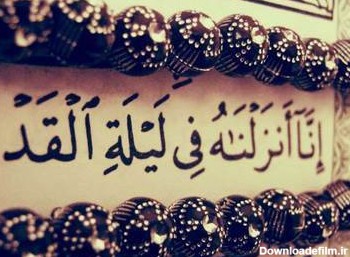 إِنَّآ أَنزَلْنَـٰهُ فِي لَيْلَةِ ٱلْقَدْ
Downloadefilm.ir